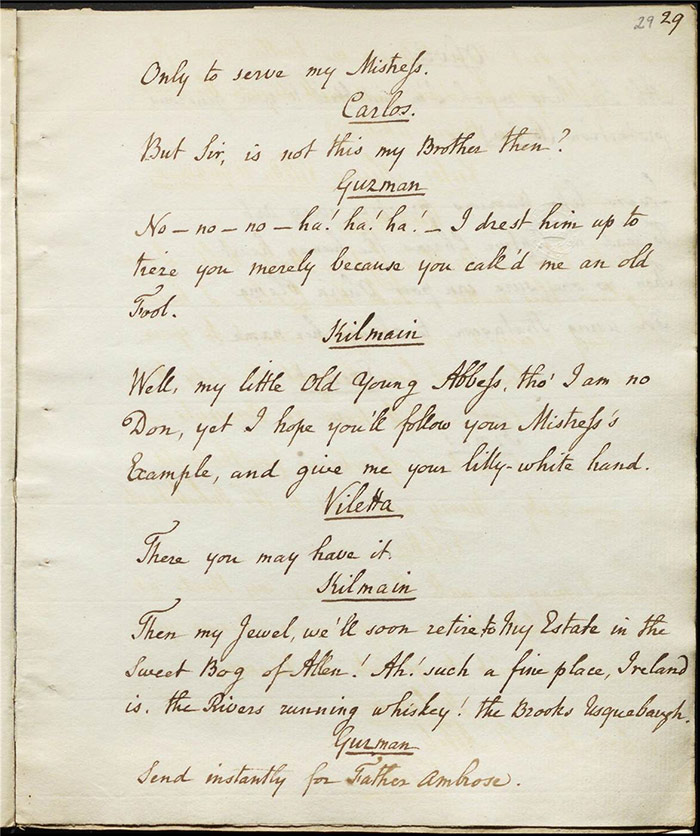 29 29
Only to serve my Mistreſs.
Carlos.
But Sir, is not this my Brother then?
Guzman
No – no – no – ha! ha! ha! – I drest him up to
tieze you merely because you call'd me an old
Fool.
Kilmain
Well, my little Old Young Abbeſs, tho' I am no
Don, yet I hope you'll follow your Mistreſs's
Example, and give me your lilly-white hand.
Viletta
There you may have it.
Kilmain
Then my Jewel, we'll soon retire to My Estate in the
Sweet Bog of Allen! Ah! such a fine place, Ireland
is. the Rivers running whiskey! the Brooks Usquebaugh.
Guzman
Send instantly for Father Ambrose.